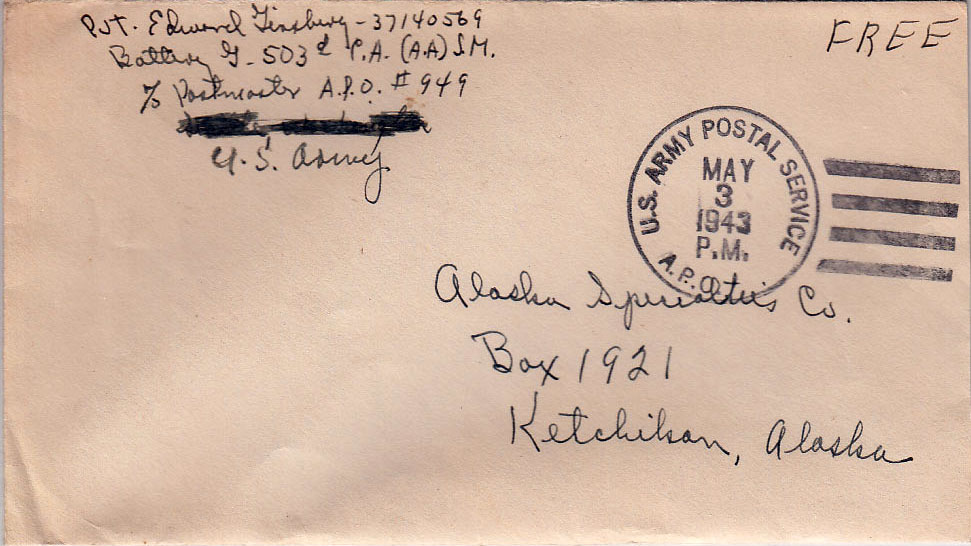 Pvt. Edward Ginsberg - 37140569
Battery G - 503d C.A. (A.A.) S.M.
% Postmaster A.P.O. # 949
U.S. Army
FREE
U.S. ARMY POSTAL SERVICE
MAY
3
1943
P.M.
A.P.O.
Alaska Specialties Co.
Box 1921
Ketchikan, Alaska